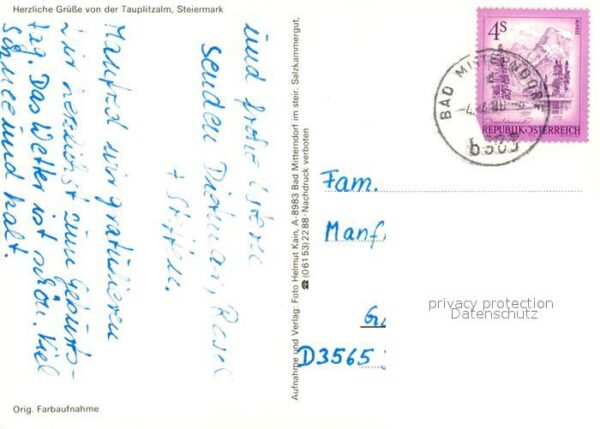 Herzliche Grüße von der Tauplitzalm, Steiermark
Manfred wir gratulieren
Dir herzlichst zum Geburts-
tag. Das Wetter ist schön. Viel
Schnee und kalt.
und frohe Ostern
senden Dietmar, Rosel
+ Steffen.
Orig. Farbaufnahme
Aufnahme und Verlag: Foto Helmut Kain, A-8983 Bad Mitterndorf im steir. Salzkammergut,
☎ (0 61 53) 22 88 · Nachdruck verboten
4S
REPUBLIK ÖSTERREICH
BAD MITTERNDORF
Fam.
Manf
D3565
privacy protection
Datenschutz